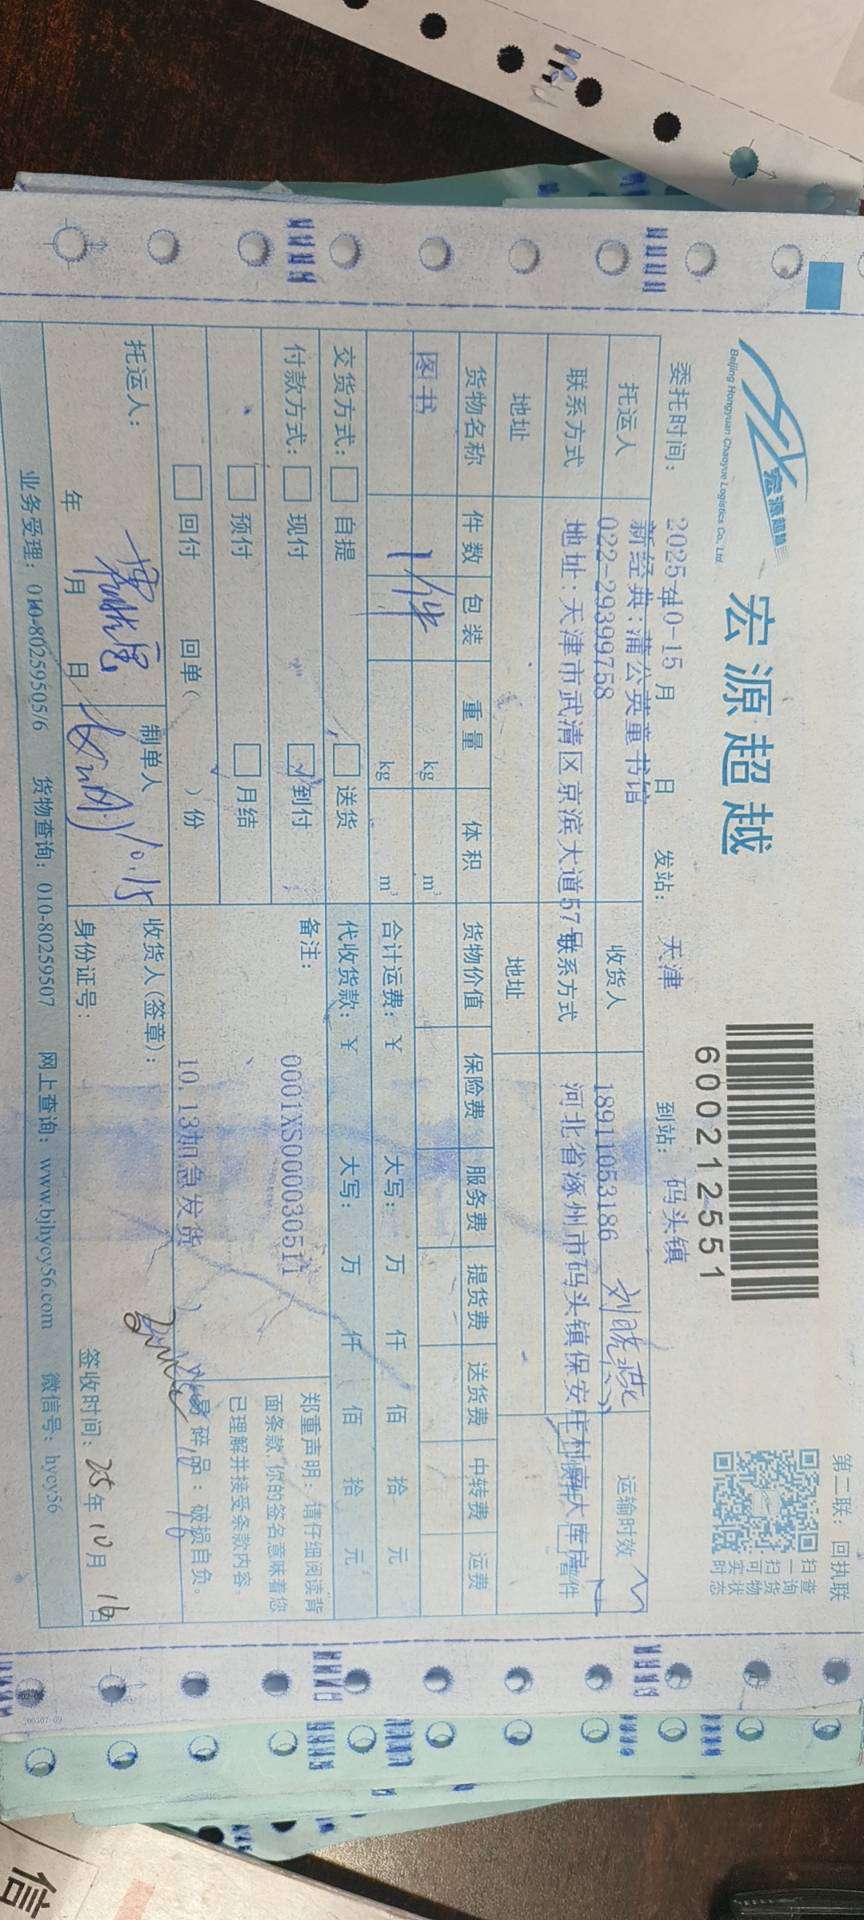 第二联：回执联
宏源超越
Beijing Hongyuan Chaoyue Logistics Co., Ltd.
宏源超越
600212551
扫一扫可实时
查询货物状态
委托时间：2025年10-15月 日 发站：天津 到站：码头镇
托运人 新经典：蒲公英童书馆 收货人 刘晓燕 运输时效
022-29399758 18911053186
联系方式 地址：天津市武清区京滨大道57号 联系方式 河北省涿州市码头镇保安庄村
地址 地址
货物名称 件数 包装 重量 体积 货物价值 保险费 服务费 提货费 送货费 中转费 运费
图书 1件 kg m³
kg m³ 合计运费：￥ 大写： 万 仟 佰 拾 元
交货方式： 自提 送货 代收货款：￥ 大写： 万 仟 佰 拾 元
付款方式： 现付 到付 备注： 0001XS000030511
预付 月结
回付 回单（ ）份 10.13加急发货
郑重声明：请仔细阅读背
面条款，你的签名意味着您
已理解并接受条款内容。
易碎品：破损自负。
托运人： 制单人 10.15 收货人（签章）：
年 月 日 身份证号： 签收时间：25年10月16日
业务受理：010-80259505/6 货物查询：010-80259507 网上查询：www.bjhycy56.com 微信号：hycy56
信